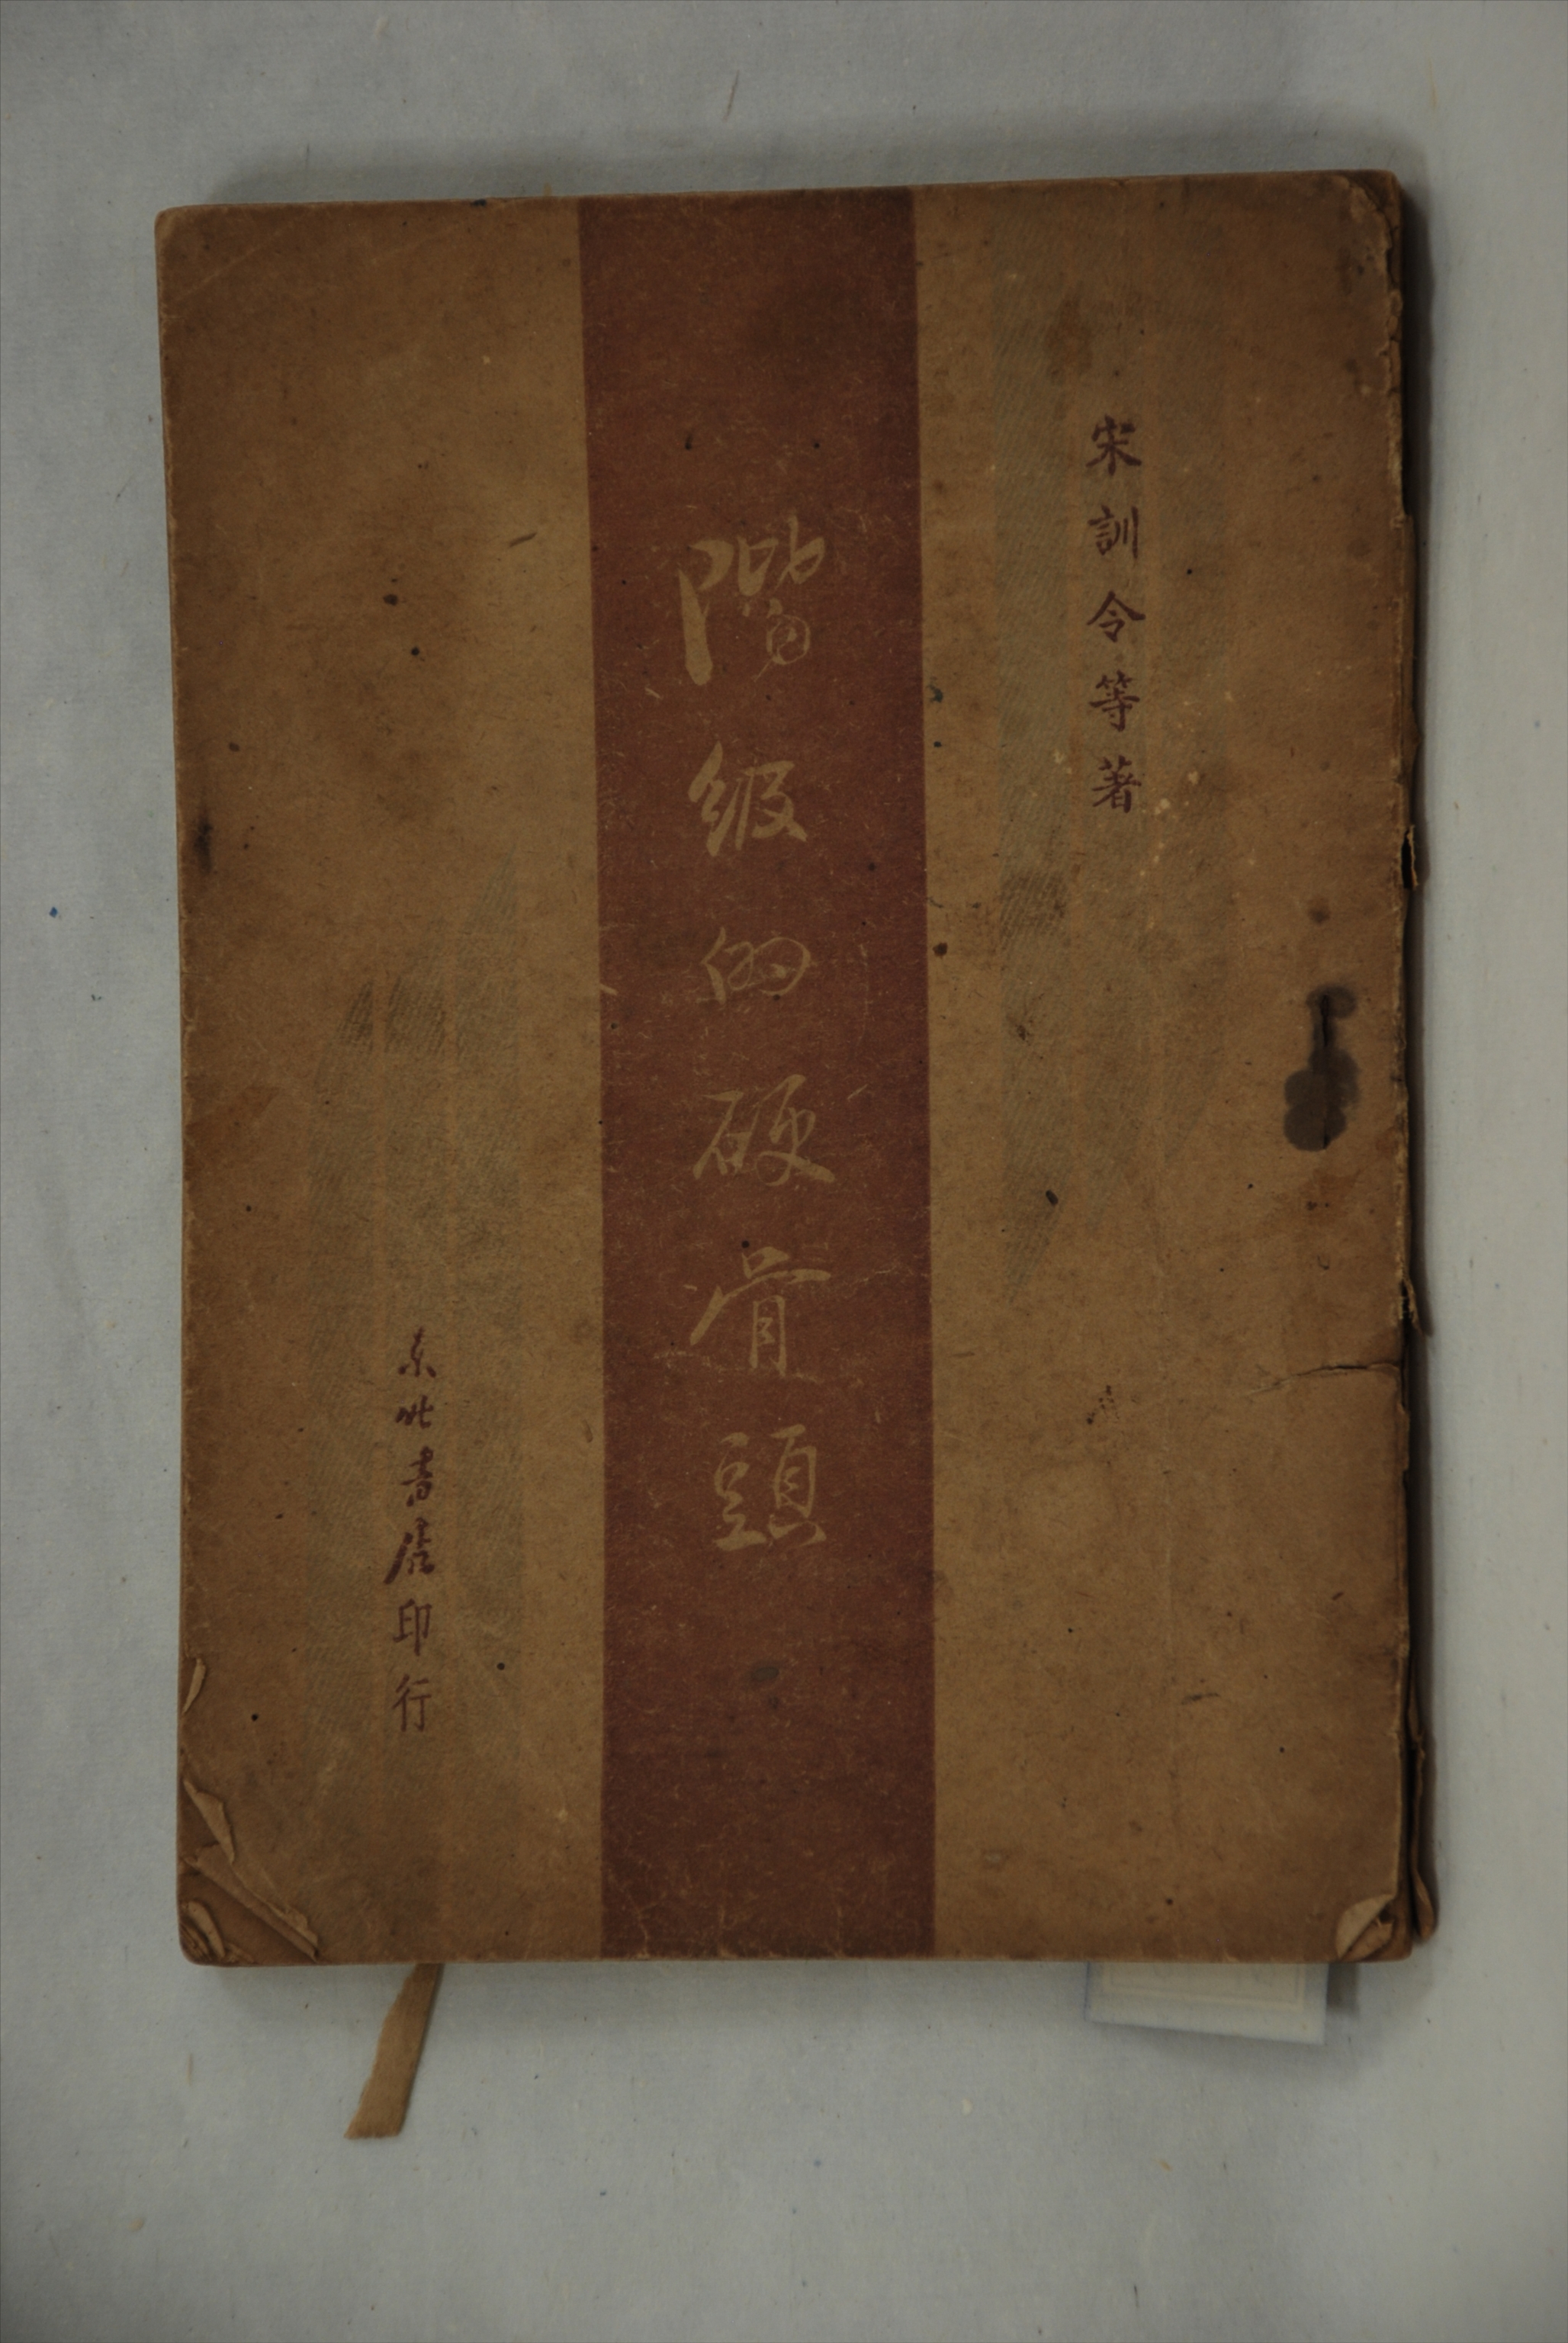 宋訓令等著
階級的硬骨頭
东北書店印行